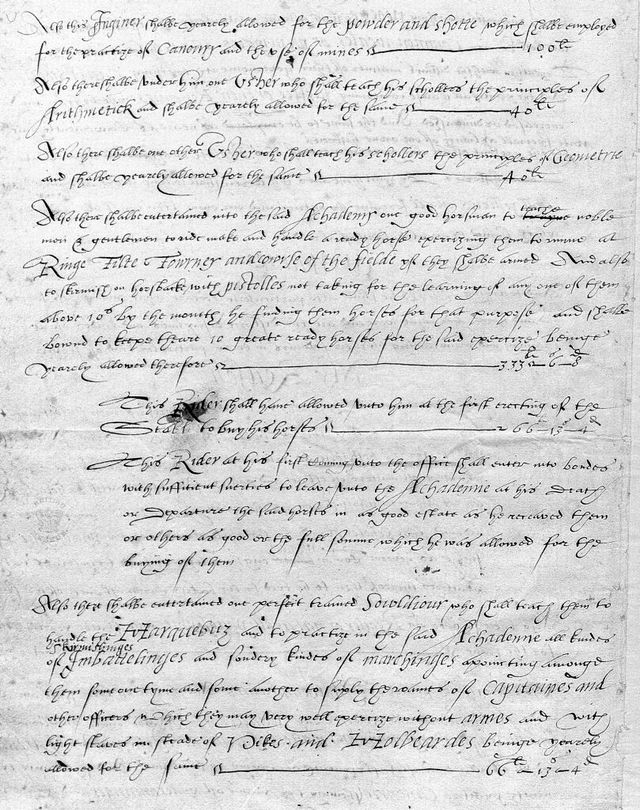 Also this Inginer shalbe yearely allowed for the powder and shotte which shalbe employed
for the practize of Canons and the vse of mines 100li
Also there shalbe vnder him one Vsher who shall teach his schollers the principles of
Arithmetick and shalbe yearely allowed for the same 40li
Also there shalbe one other Vsher who shall teach his schollers the principles of Geometrie
and shalbe yearely allowed for the same 40li
Also there shalbe entertained into the said Achademy one good horsman to teache noble
men & gentlemen to ride make and handle a ready horse exercizing them to runne at
Ringe Tilte Tourney and course of the fielde yf they shalbe armed And also
to skirmish on horsbacke with pistolles not taking for the learning of any one of them
above 10s by the month he finding them horses for that purpose and shalbe
bound to keepe theare 10 greate ready horses for the said exercize beinge
yearely allowed therefore 333li 6s 8d
This Rider shall haue allowed vnto him at the first erecting of the
Stall to buy his horses 266 13 4d
This Rider at his first coming vnto the office shall enter into bondes
with sufficient suerties to leave vnto the Achademie at his death
or departure the said horses in as good estate as he receaved them
or others as good or the full somme which he was allowed for the
buying of them
Also there shalbe entertained one perfect trained Souldiour who shall teach them to
handle the Harquebuz and to practize in the said Achademie all kindes
of Skirmishinges Imbattelinges and sondery kindes of marchinges apointing amonge
them some one tyme and some another to supply the rowmes of Capitaines and
other officers which they may very well exercize without armes and with
light staves in steade of Pikes and Holbeardes beinge yearely
allowed for the same 66li 13s 4d